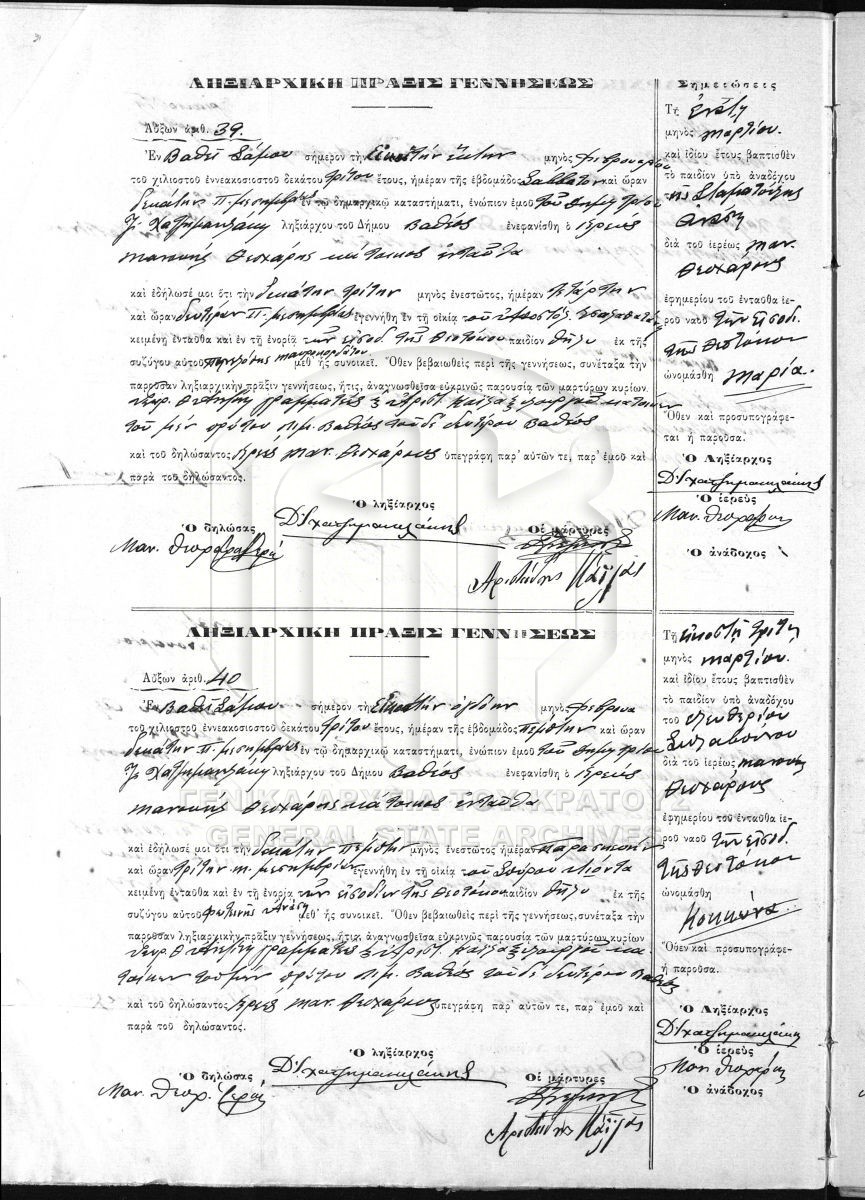 ΛΗΞΙΑΡΧΙΚΗ ΠΡΑΞΙΣ ΓΕΝΝΗΣΕΩΣ
Αὔξων ἀριθ. 39.
Ἐν Βαθεῖ Σάμου σήμερον τὴν Εἰκοστὴν ἕκτην μηνὸς Φεβρουαρίου
τοῦ χιλιοστοῦ ἐννεακοσιοστοῦ δεκάτου τρίτου ἔτους, ἡμέραν τῆς ἑβδομάδος Σάββατον καὶ ὥραν
δεκάτην π. μεσημβρίας ἐν τῷ δημαρχικῷ καταστήματι, ἐνώπιον ἐμοῦ τοῦ Δημητρίου
Ἰ. Χατζημανωλάκη ληξιάρχου τοῦ Δήμου Βαθέος ἐνεφανίσθη ὁ ἱερεὺς
Μανουὴλ Θεοχάρης κάτοικος ἐνταῦθα
καὶ ἐδήλωσέ μοι ὅτι τὴν δεκάτην τρίτην μηνὸς ἐνεστῶτος, ἡμέραν τετάρτην
καὶ ὥραν δευτέραν π. μεσημβρίας ἐγεννήθη ἐν τῇ οἰκίᾳ του
κειμένῃ ἐνταῦθα καὶ ἐν τῇ ἐνορίᾳ τῶν εἰσοδ. τῆς Θεοτόκου παιδίον θῆλυ ἐκ τῆς
συζύγου αὐτοῦ μεθ' ἧς συνοικεῖ. Ὅθεν βεβαιωθεὶς περὶ τῆς γεννήσεως, συνέταξα τὴν
παροῦσαν ληξιαρχικὴν πρᾶξιν γεννήσεως, ἥτις, ἀναγνωσθεῖσα εὐκρινῶς παρουσίᾳ τῶν μαρτύρων κυρίων
γραμματέως κ Ἀριστ. κατοίκων
τοῦ μὲν πρώτου Λιμ. Βαθέος τοῦ δὲ δευτέρου Βαθέος
καὶ τοῦ δηλώσαντος ἱερέως Μαν. Θεοχάρους ὑπεγράφη παρ' αὐτῶν τε, παρ' ἐμοῦ καὶ
παρὰ τοῦ δηλώσαντος.
Ὁ ληξίαρχος
Ὁ δηλώσας
Δ Ἰ Χατζημανωλάκης
Οἱ μάρτυρες
Μαν.
Ἀριστείδης
Σημειώσεις
Τῇ ἐνάτῃ
μηνὸς Μαρτίου.
καὶ ἰδίου ἔτους βαπτισθὲν
τὸ παιδίον ὑπὸ ἀναδόχου
τῆς Σταματούλης
διὰ τοῦ ἱερέως Μαν.
Θεοχάρους
ἐφημερίου τοῦ ἐνταῦθα ἱε-
ροῦ ναοῦ τῶν εἰσοδ.
τῆς Θεοτόκου
ὠνομάσθη Μαρία.
Ὅθεν καὶ προσυπογράφε-
ται ἡ παροῦσα.
Ὁ Ληξίαρχος
Δ Ἰ Χατζημανωλάκης
Ὁ ἱερεὺς
Μαν.
Ὁ ἀνάδοχος
ΛΗΞΙΑΡΧΙΚΗ ΠΡΑΞΙΣ ΓΕΝΝΗΣΕΩΣ
Αὔξων ἀριθ. 40
Ἐν Βαθεῖ Σάμου σήμερον τὴν Εἰκοστὴν ὀγδόην μηνὸς Φεβρουα
τοῦ χιλιοστοῦ ἐννεακοσιοστοῦ δεκάτου τρίτου ἔτους, ἡμέραν τῆς ἑβδομάδος πέμπτην καὶ ὥραν
δεκάτην π. μεσημβρίας ἐν τῷ δημαρχικῷ καταστήματι, ἐνώπιον ἐμοῦ τοῦ Δημητρίου
Ἰ. Χατζημανωλάκη ληξιάρχου τοῦ Δήμου Βαθέος ἐνεφανίσθη ὁ ἱερεὺς
Μανουὴλ Θεοχάρης κάτοικος ἐνταῦθα
ΓΕΝΙΚΑ ΑΡΧΕΙΑ ΤΟΥ ΚΡΑΤΟΥΣ
GENERAL STATE ARCHIVES
καὶ ἐδήλωσέ μοι ὅτι τὴν δεκάτην πέμπτην μηνὸς ἐνεστῶτος ἡμέραν παρασκευὴν
καὶ ὥραν τρίτην μ. μεσημβρίαν ἐγεννήθη ἐν τῇ οἰκίᾳ του Σπύρου
κειμένῃ ἐνταῦθα καὶ ἐν τῇ ἐνορίᾳ τῶν εἰσοδίων τῆς Θεοτόκου παιδίον θῆλυ ἐκ τῆς
συζύγου αὐτοῦ Φωτεινῆς μεθ' ἧς συνοικεῖ. Ὅθεν βεβαιωθεὶς περὶ τῆς γεννήσεως, συνέταξα τὴν
παροῦσαν ληξιαρχικὴν πρᾶξιν γεννήσεως, ἥτις, ἀναγνωσθεῖσα εὐκρινῶς παρουσίᾳ τῶν μαρτύρων κυρίων
γραμματέως κ Ἀριστ. κα
τοίκων τοῦ μὲν πρώτου Λιμ. Βαθέος τοῦ δὲ δευτέρου Βαθέος
καὶ τοῦ δηλώσαντος ἱερέως Μαν. Θεοχάρους ὑπεγράφη παρ' αὐτῶν τε, παρ' ἐμοῦ καὶ
παρὰ τοῦ δηλώσαντος.
Ὁ ληξίαρχος
Ὁ δηλώσας
Δ Ἰ Χατζημανωλάκης
Οἱ μάρτυρες
Μαν.
Ἀριστείδης
Τῇ εἰκοστῇ τρίτῃ
μηνὸς Μαρτίου.
καὶ ἰδίου ἔτους βαπτισθὲν
τὸ παιδίον ὑπὸ ἀναδόχου
τοῦ Ἐλευθερίου
διὰ τοῦ ἱερέως Μανουὴλ
Θεοχάρους
ἐφημερίου τοῦ ἐνταῦθα ἱε-
ροῦ ναοῦ τῶν εἰσοδ.
τῆς Θεοτόκου
ὠνομάσθη
Κοκκώνα
Ὅθεν καὶ προσυπογράφε-
ἡ παροῦσα.
Ὁ Ληξίαρχος
Δ Ἰ Χατζημανωλάκης
Ὁ ἱερεὺς
Μαν.
Ὁ ἀνάδοχος